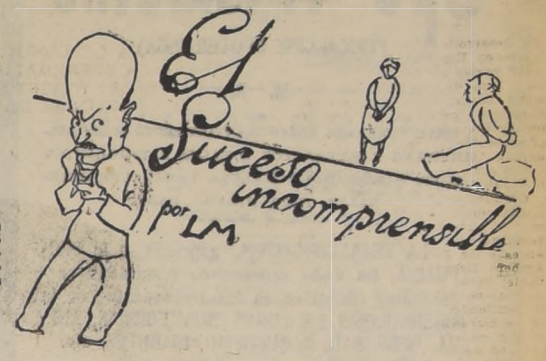 El
Suceso
incomprensible
por LM